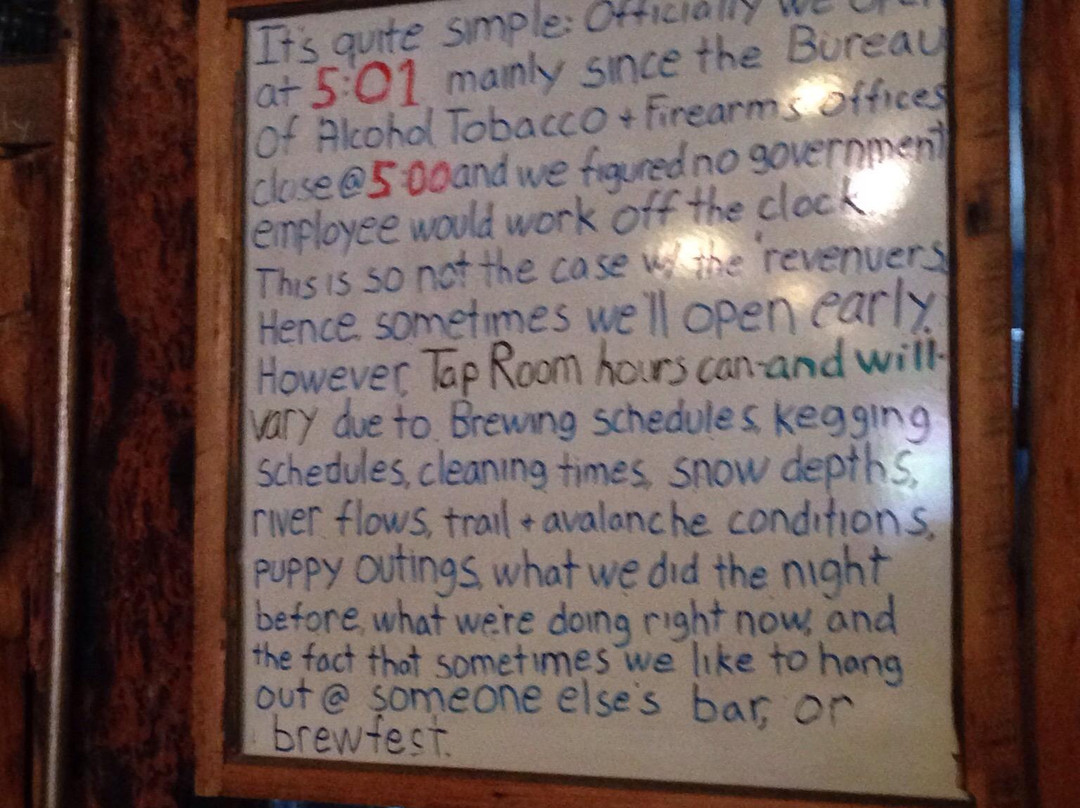 It's quite simple: Officially we open
at 5:01 mainly since the Bureau
of Alcohol Tobacco + Firearms offices
close @ 5:00 and we figured no government
employee would work off the clock
This is so not the case w/ the 'revenuers
Hence, sometimes we'll open early.
However, Tap Room hours can-and will-
vary due to Brewing schedules, kegging
schedules, cleaning times, snow depths,
river flows, trail + avalanche conditions,
puppy outings, what we did the night
before, what we're doing right now, and
the fact that sometimes we like to hang
out @ someone else's bar, or
brewfest.